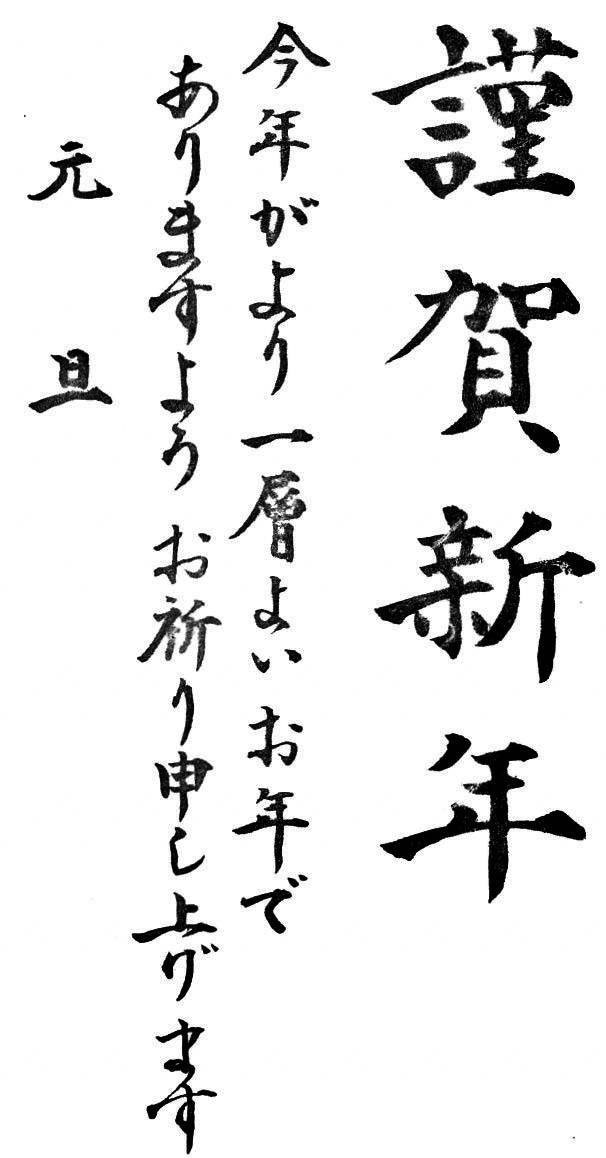 謹賀新年
今年がより一層よいお年で
ありますようお祈り申し上げます
元旦